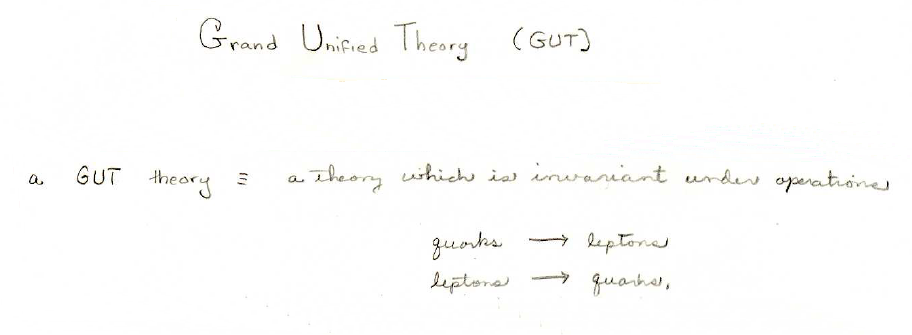 Grand Unified Theory (GUT)
a GUT theory ≡ a theory which is invariant under operations
quarks → leptons
leptons → quarks.